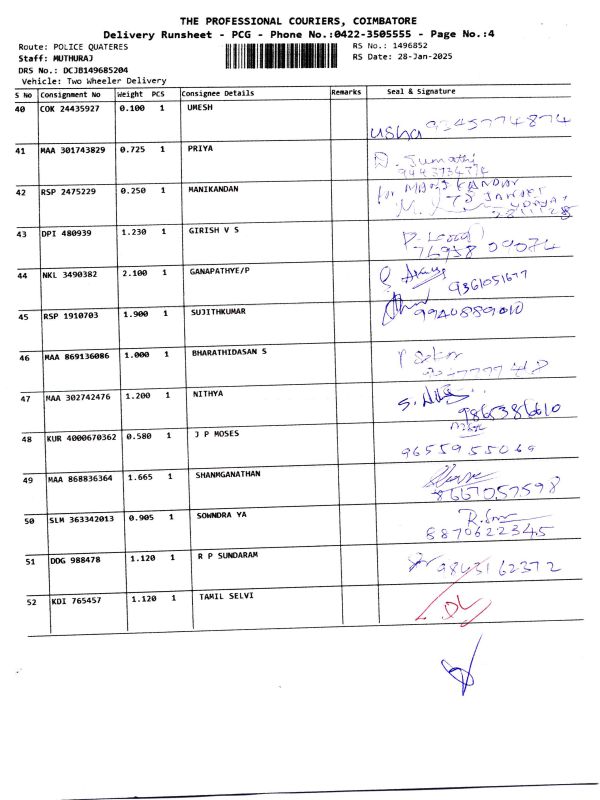 THE PROFESSIONAL COURIERS, COIMBATORE
Delivery Runsheet - PCG - Phone No.:0422-3505555 - Page No.:4
Route: POLICE QUATERES RS No.: 1496852
Staff: MUTHURAJ RS Date: 28-Jan-2025
DRS No.: DCJB149685204
Vehicle: Two Wheeler Delivery
S No Consignment No Weight PCS Consignee Details Remarks Seal & Signature
40 COK 24435927 0.100 1 UMESH
usha 9345774874
41 MAA 301743829 0.725 1 PRIYA
D. Sumathi
42 RSP 2475229 0.250 1 MANIKANDAN
for
43 DPI 480939 1.230 1 GIRISH V S
44 NKL 3490382 2.100 1 GANAPATHYE/P
9361051677
45 RSP 1910703 1.900 1 SUJITHKUMAR
9940889010
46 MAA 869136086 1.000 1 BHARATHIDASAN S
47 MAA 302742476 1.200 1 NITHYA
9865386610
48 KUR 4000670362 0.580 1 J P MOSES
9655955069
49 MAA 868836364 1.665 1 SHANMGANATHAN
8667057598
50 SLM 363342013 0.905 1 SOWNDRA YA
8870622345
51 DDG 988478 1.120 1 R P SUNDARAM
9843162372
52 KDI 765457 1.120 1 TAMIL SELVI
DL